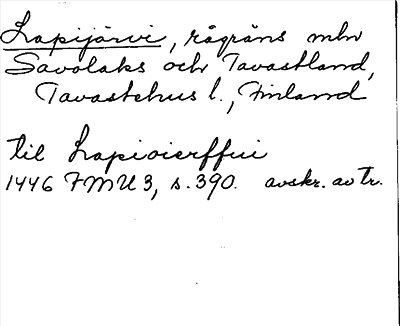 Lapijärvi, rågräns mln
Savolaks och Tavastland,
Tavastehus l., Finland
til Lapioierffui
1446 FMU 3, s. 390. avskr. av tr.